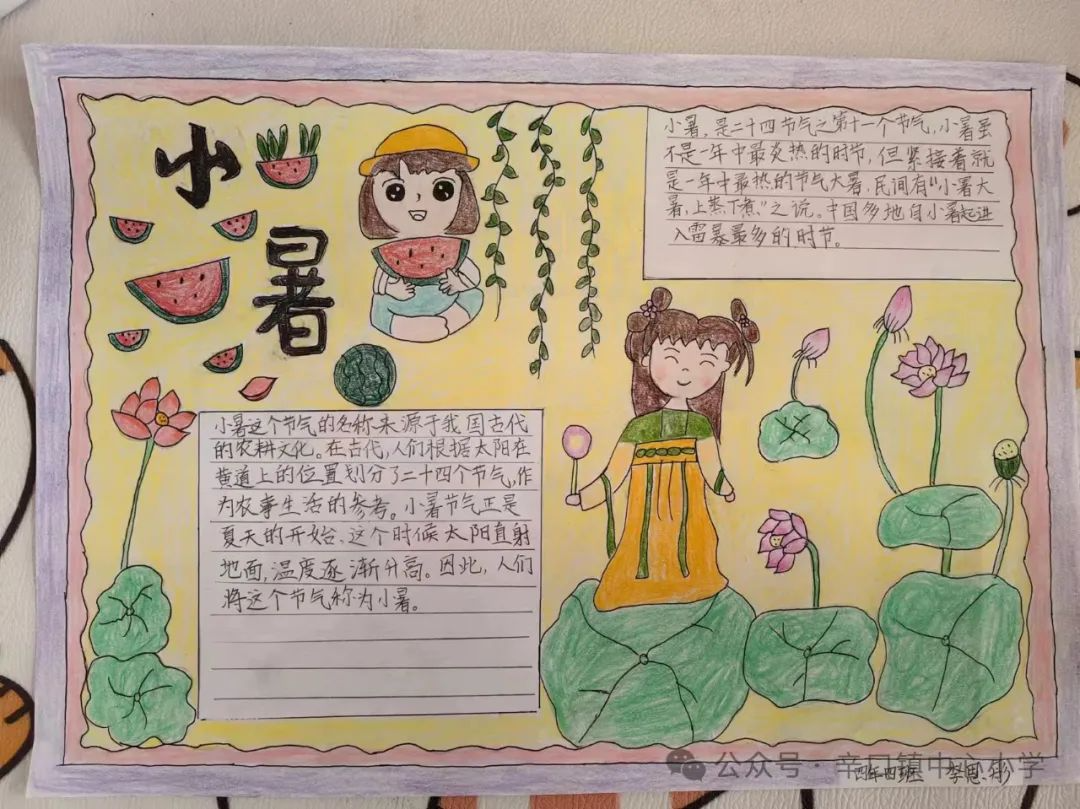 小
暑
小暑，是二十四节气之第十一个节气，小暑虽
不是一年中最炎热的时节，但紧接着就
是一年中最热的节气大暑，民间有“小暑大
暑，上蒸下煮”之说。中国多地自小暑起进
入雷暴最多的时节。
小暑这个节气的名称来源于我国古代
的农耕文化。在古代，人们根据太阳在
黄道上的位置划分了二十四个节气，作
为农事生活的参考。小暑节气正是
夏天的开始、这个时候太阳直射
地面，温度逐渐升高。因此，人们
将这个节气称为小暑。
四年四班
公众号·辛口镇中心小学